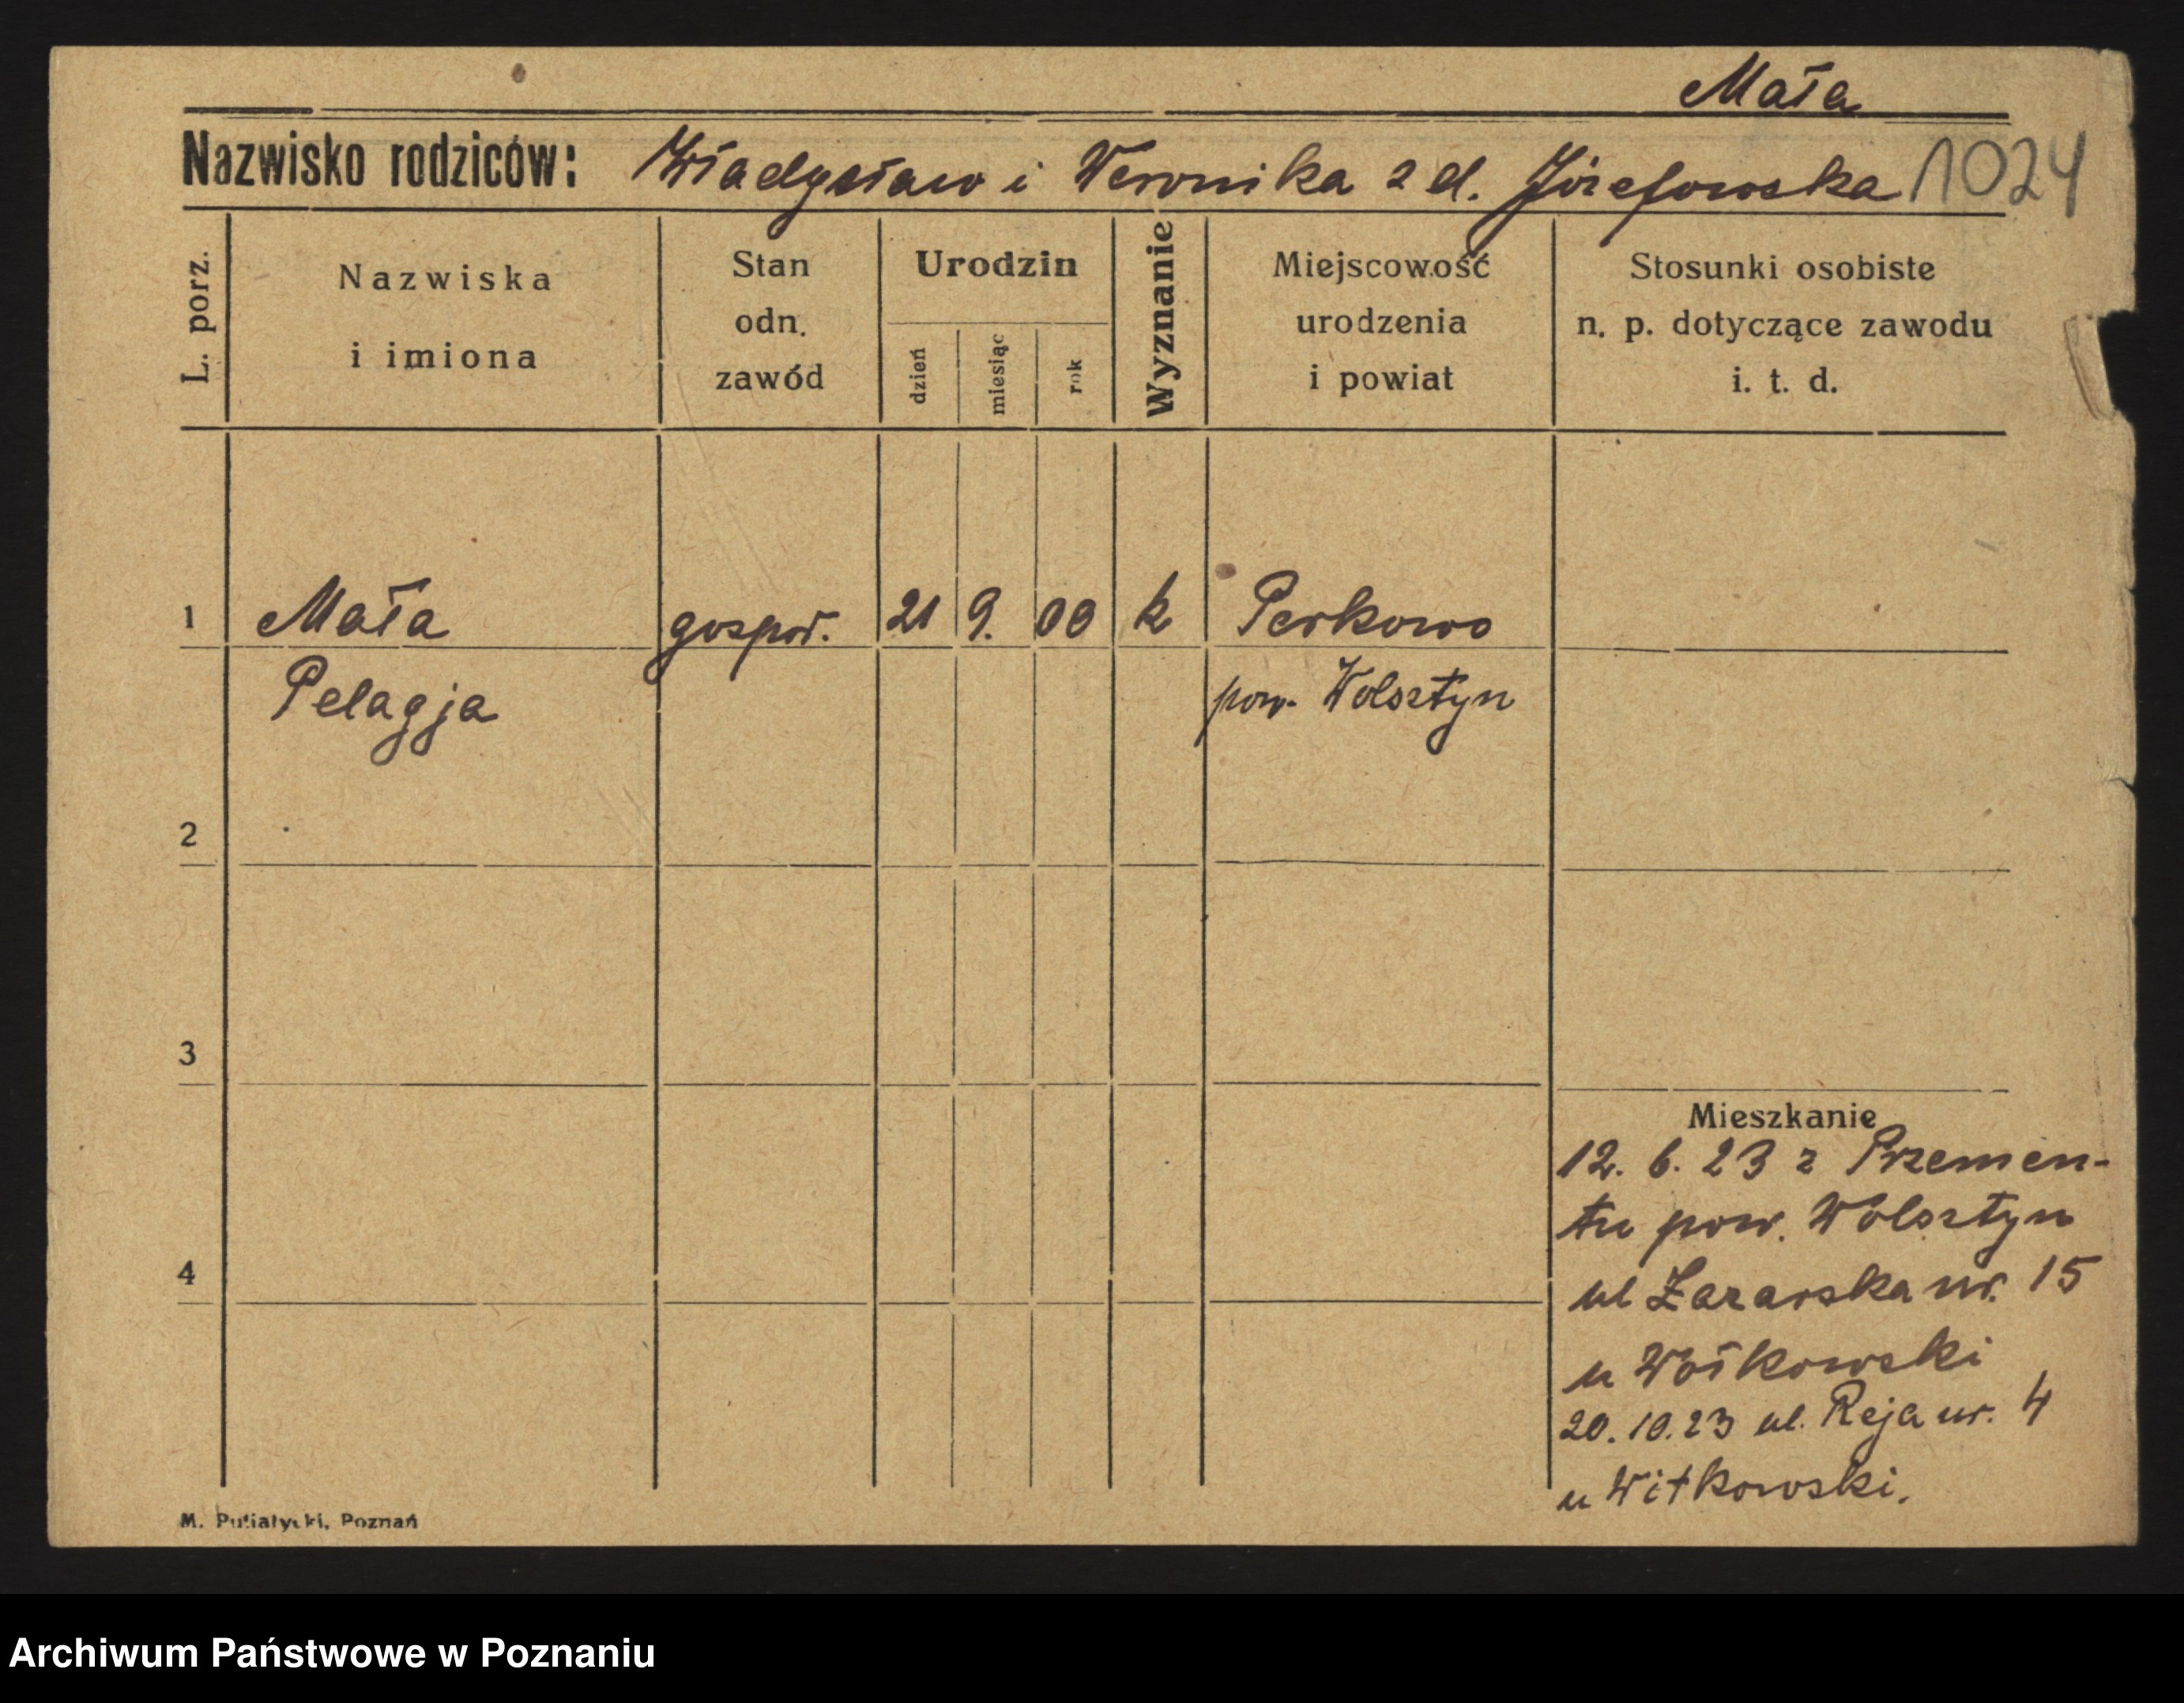 Mała
Nazwisko rodziców: Władysław i Weronika z d. Józefowska 1024
L. porz.
Nazwiska
i imiona
Stan
odn.
zawód
Urodzin
dzień
miesiąc
rok
Wyznanie
Miejscowość
urodzenia
i powiat
Stosunki osobiste
n. p. dotyczące zawodu
i. t. d.
1 Mała gospod. 21 9. 00 k Perkowo
Pelagja pow. Wolsztyn
2
3
4
Mieszkanie
12. 6. 23 z Przemen-
tu pow. Wolsztyn
ul Łazarska nr. 15
u Wołkowski
20. 10. 23 ul. Reja nr. 4
u Witkowski.
M. Putiatycki, Poznań
Archiwum Państwowe w Poznaniu